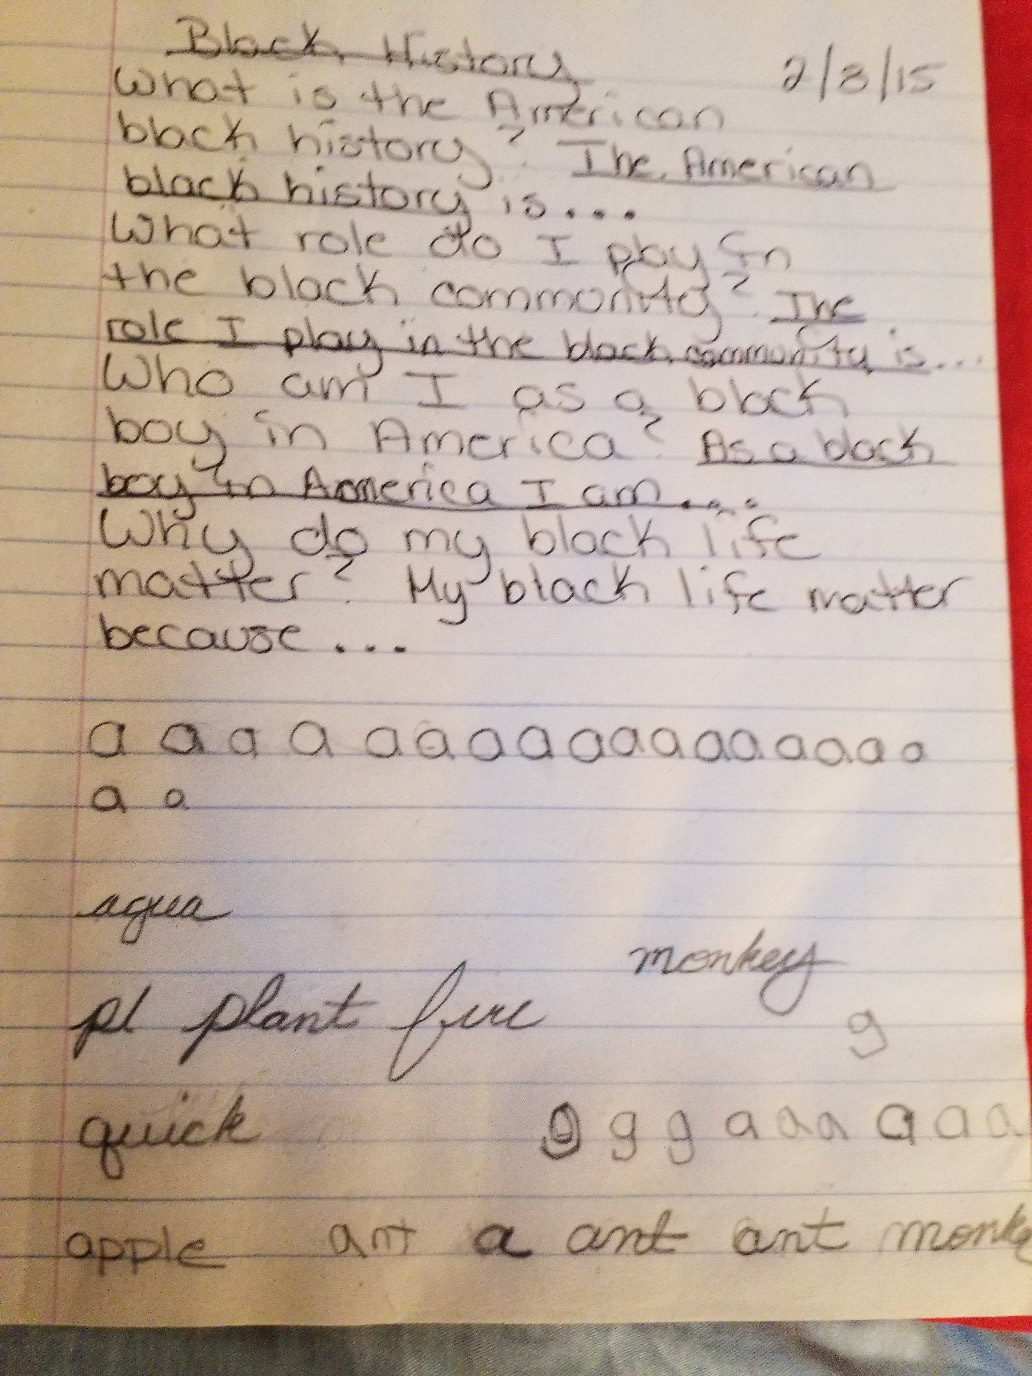 Black History
2/8/15
What is the American
black history? The American
black history is...
What role do I play in
the black community? The
role I play in the black community is...
Who am I as a black
boy in America? As a black
boy in America I am....
Why do my black life
matter? My black life matter
because...
a a a a a a a a a a a a a a a a a
a a
agua
monkey
pl plant fire
g
quick g g g a a a a a a
apple ant a ant ant monke